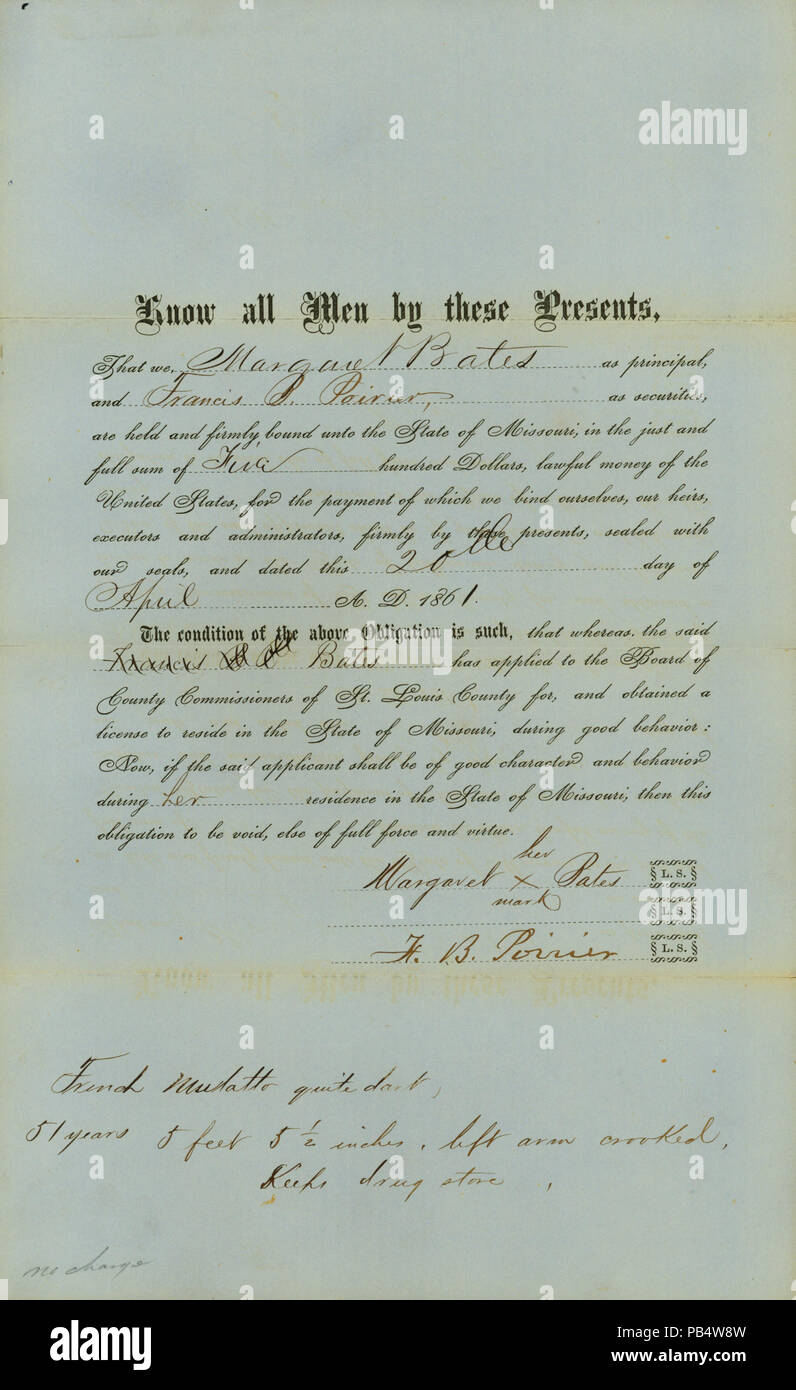 Know all Men by these Presents,
That we, Margaret Bates as principal,
and Francis P. Poirier, as securities,
are held and firmly bound unto the State of Missouri, in the just and
full sum of Five hundred Dollars, lawful money of the
United States, for the payment of which we bind ourselves, our heirs,
executors and administrators, firmly by these presents, sealed with
our seals, and dated this 20th day of
April A. D. 1861.
The condition of the above Obligation is such, that whereas, the said
Bates has applied to the Board of
County Commissioners of St. Louis County for, and obtained a
license to reside in the State of Missouri, during good behavior:
Now, if the said applicant shall be of good character and behavior
during her residence in the State of Missouri, then this
obligation to be void, else of full force and virtue.
her
Margaret X Bates § L. S. §
mark
§ L. S. §
F. B. Poirier § L. S. §
French Mulatto quite dark,
51 years 5 feet 5 1/2 inches, left arm crooked,
Keeps drug store,
no charge
alamy
a
alamy stock photo
Image ID: PB4W8W
www.alamy.com